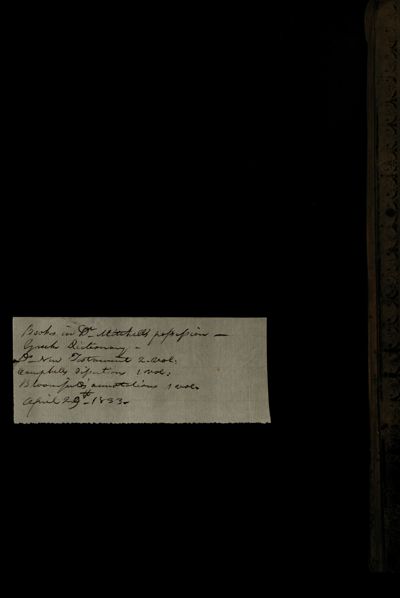 Books in Dr Mitchells possession —
Greek Dictionary —
Do New Testament 2 vol.
Campbells 1 vol.
Bloomfields annotations 1 vol.
April 29th 1833.